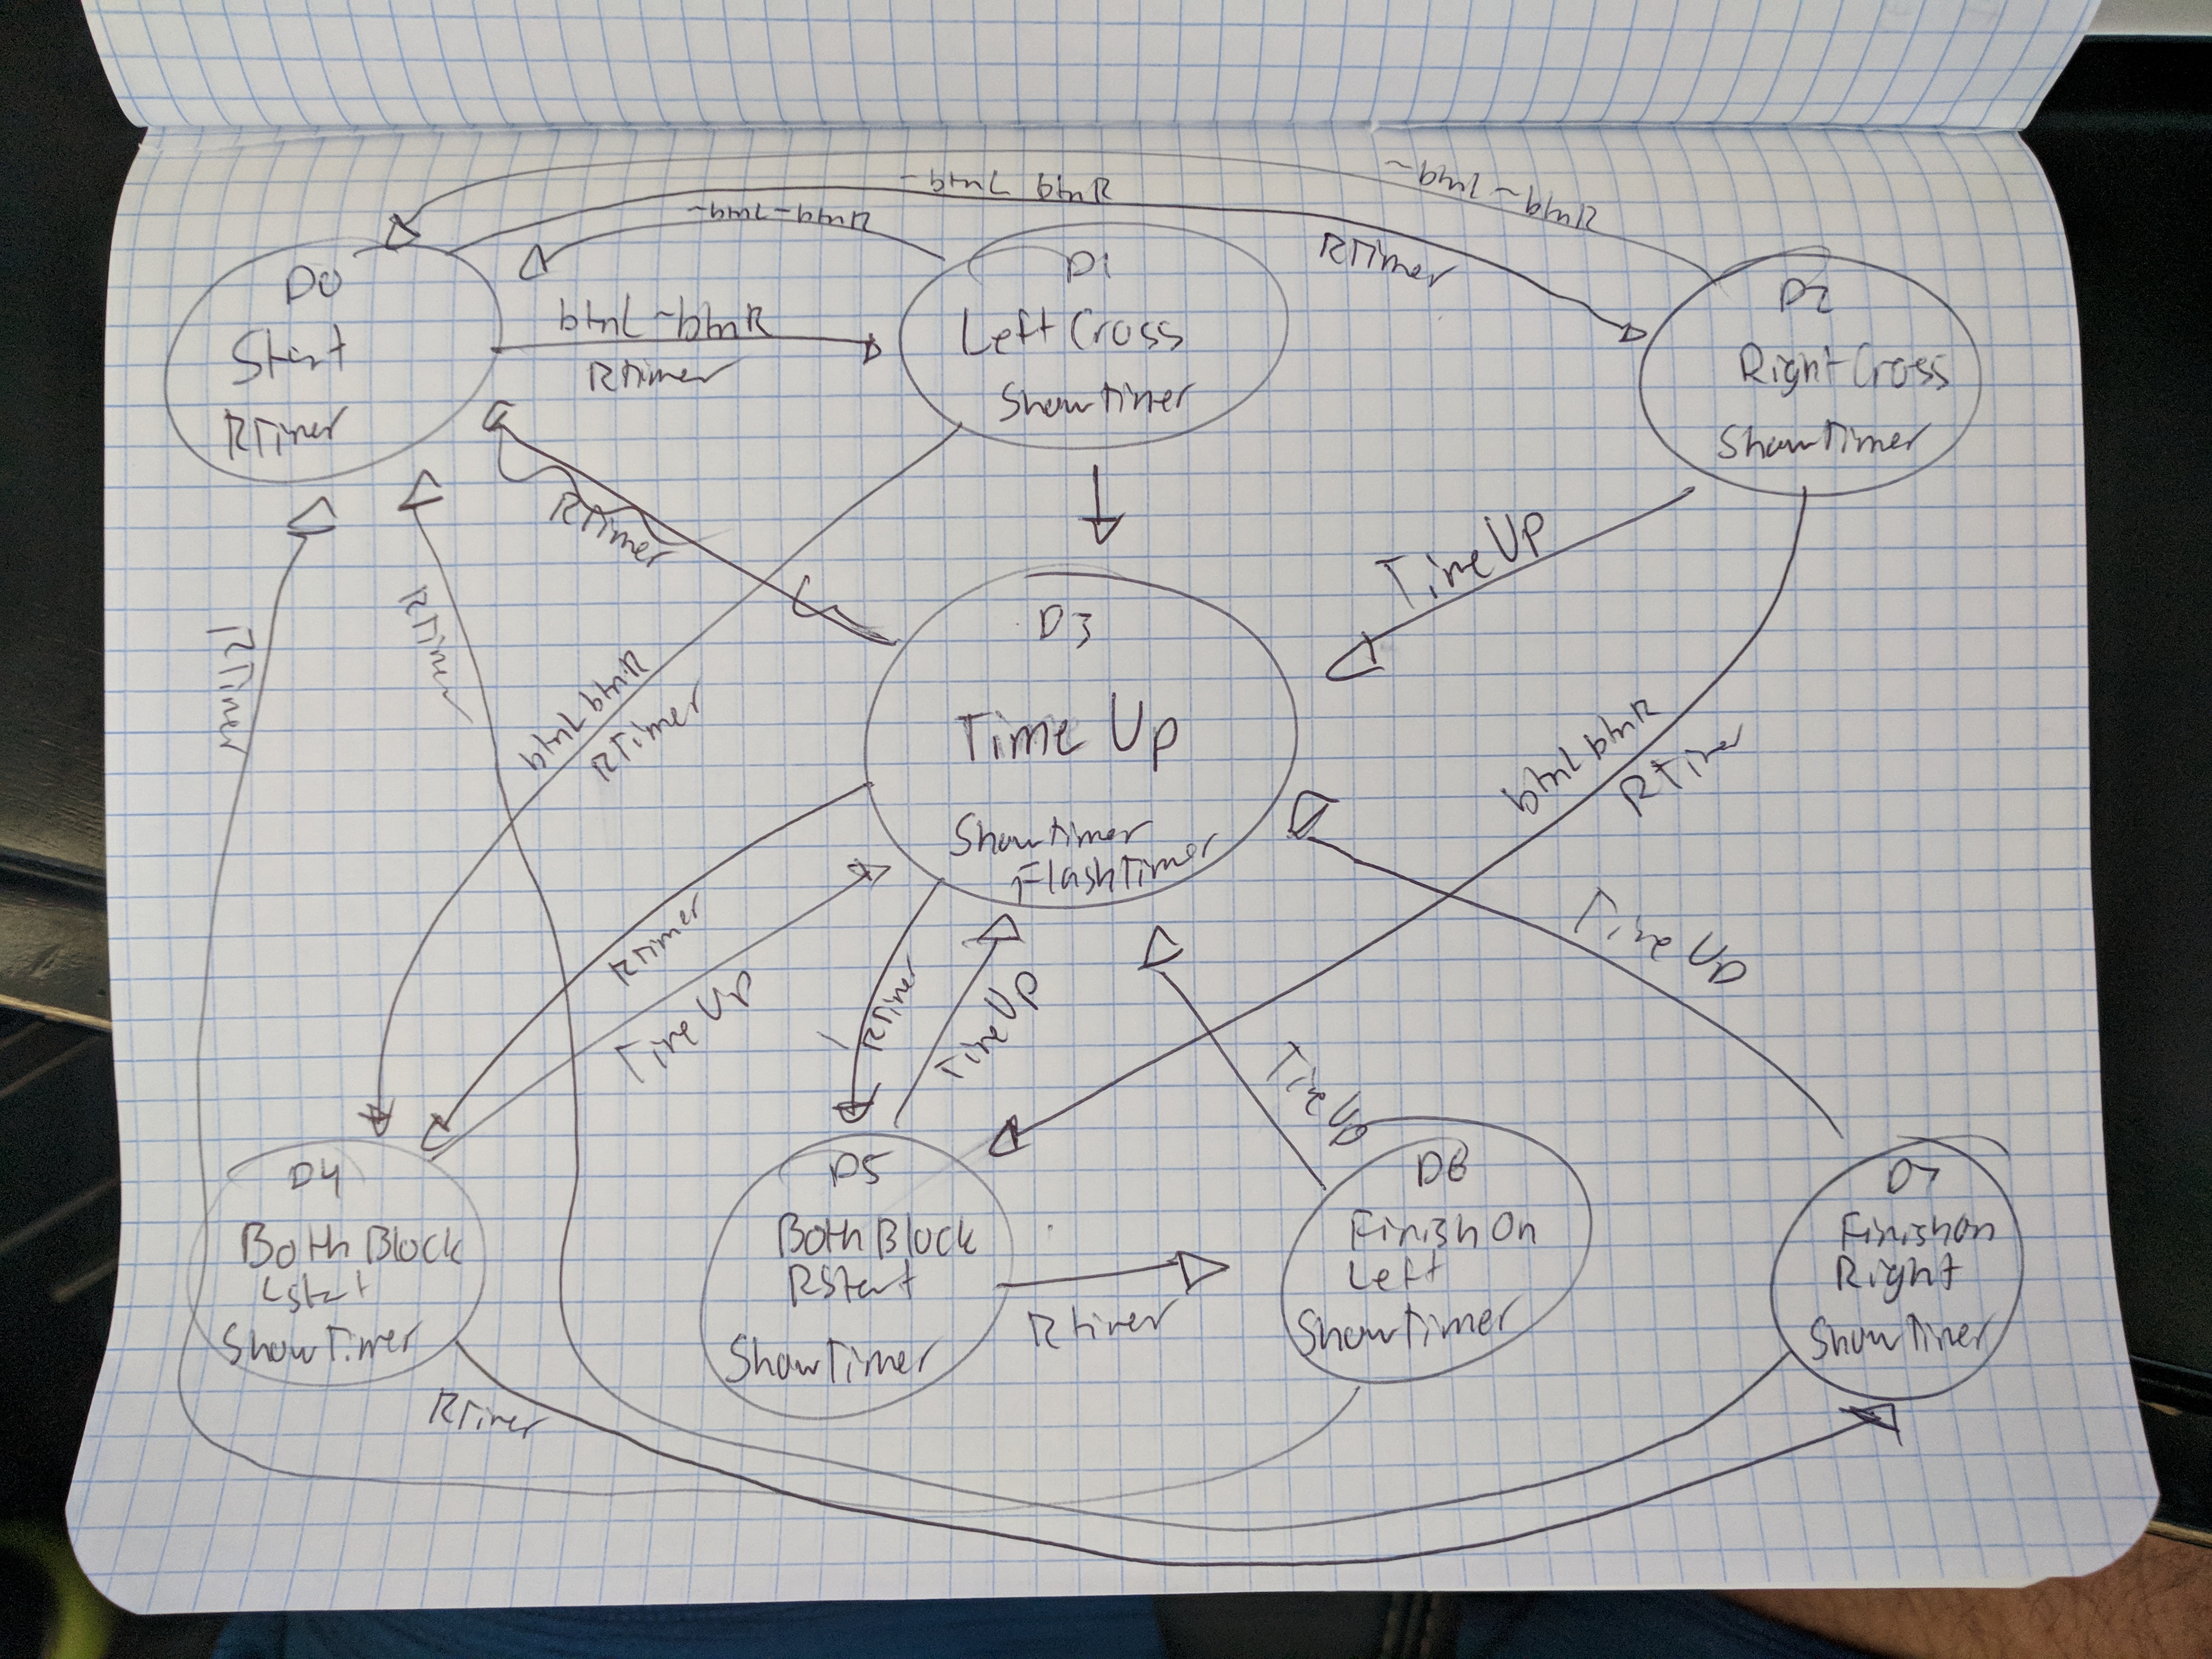 ~btnL ~btnR
~btnL btnR
~btnL ~btnR
RTimer
D0
Start
RTimer
btnL ~btnR
RTimer
D1
Left Cross
ShowTimer
D2
Right Cross
ShowTimer
RTimer
TimeUp
RTimer
RTimer
btnL btnR
RTimer
D3
Time Up
ShowTimer
FlashTimer
btnL btnR
RTimer
RTimer
TimeUp
RTimer
TimeUp
Time Up
Time Up
D4
Both Block
LStart
ShowTimer
D5
Both Block
RStart
ShowTimer
RTimer
D6
Finish On
Left
ShowTimer
D7
Finish On
Right
ShowTimer
RTimer